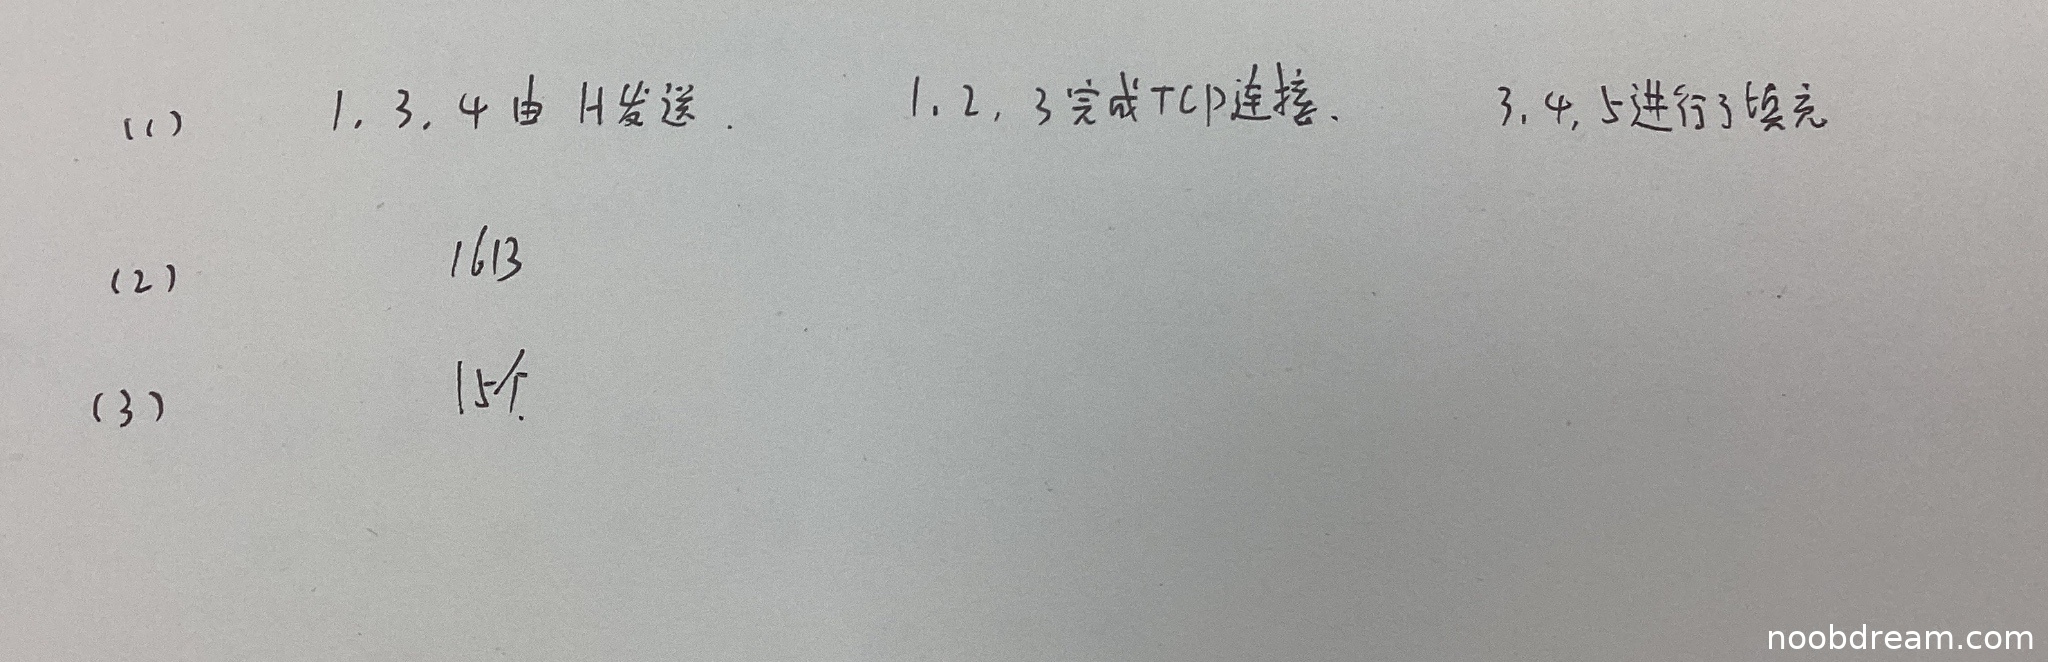 (1) 1.3.4由H发送. 1.2,3完成TCP连接. 3.4,5进行了填充
(2) 1613
(3) 15个.
noobdream.com